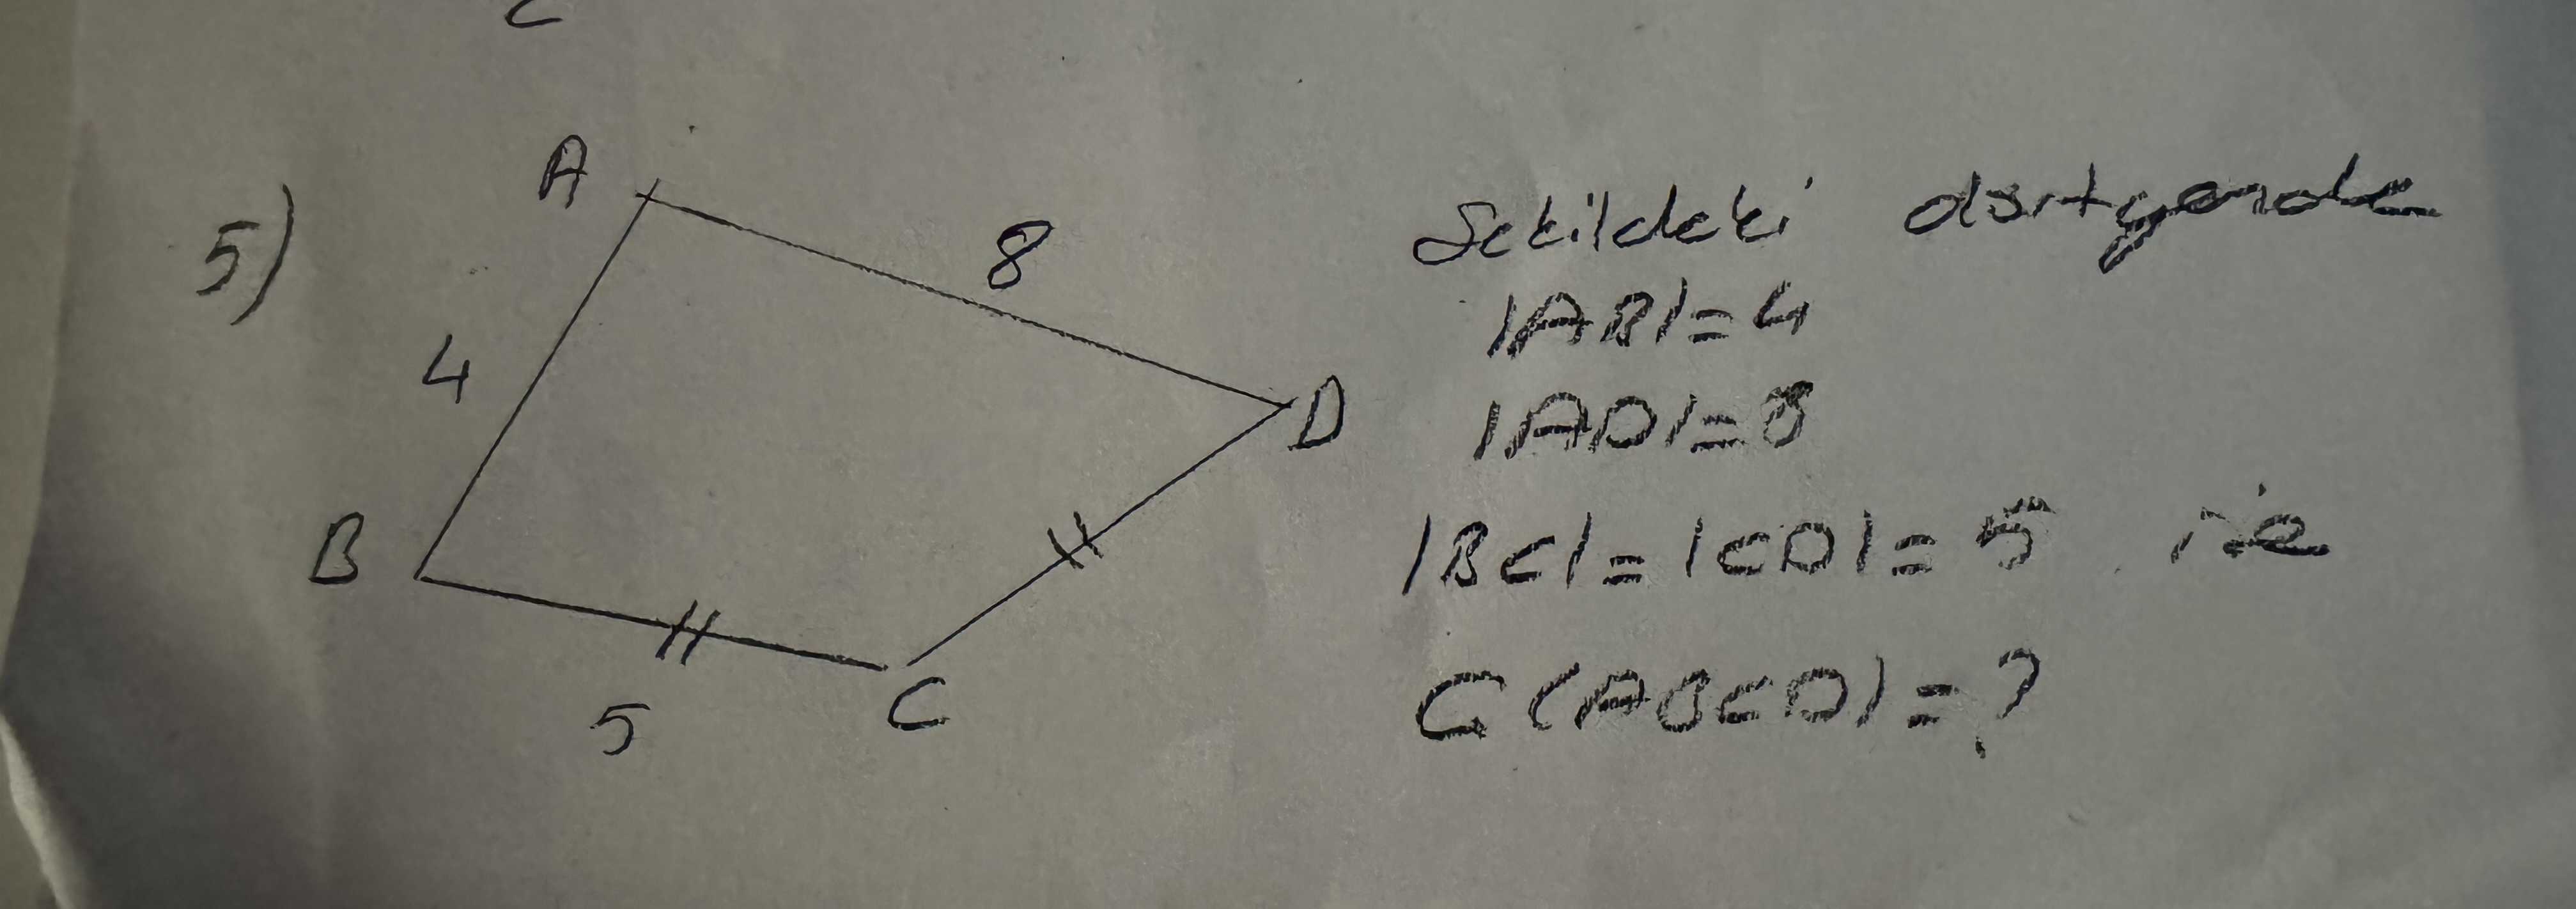 5)
A
8
4
D
B
5
C
Şekildeki dörtgende
|AB|=4
|AD|=8
|BC|=|CD|=5 ise
Ç(ABCD)=?